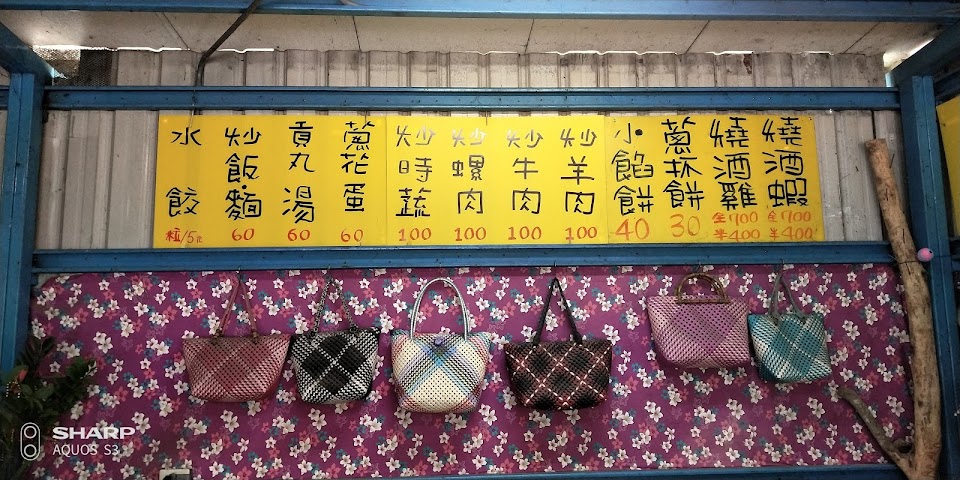 燒酒蝦
全700
半400
燒酒雞
全700
半400
蔥抓餅
30
小餡餅
40
炒羊肉
100
炒牛肉
100
炒螺肉
100
炒時蔬
100
蔥花蛋
60
貢丸湯
60
炒飯·麵
60
水餃
粒/5元
SHARP
AQUOS S3